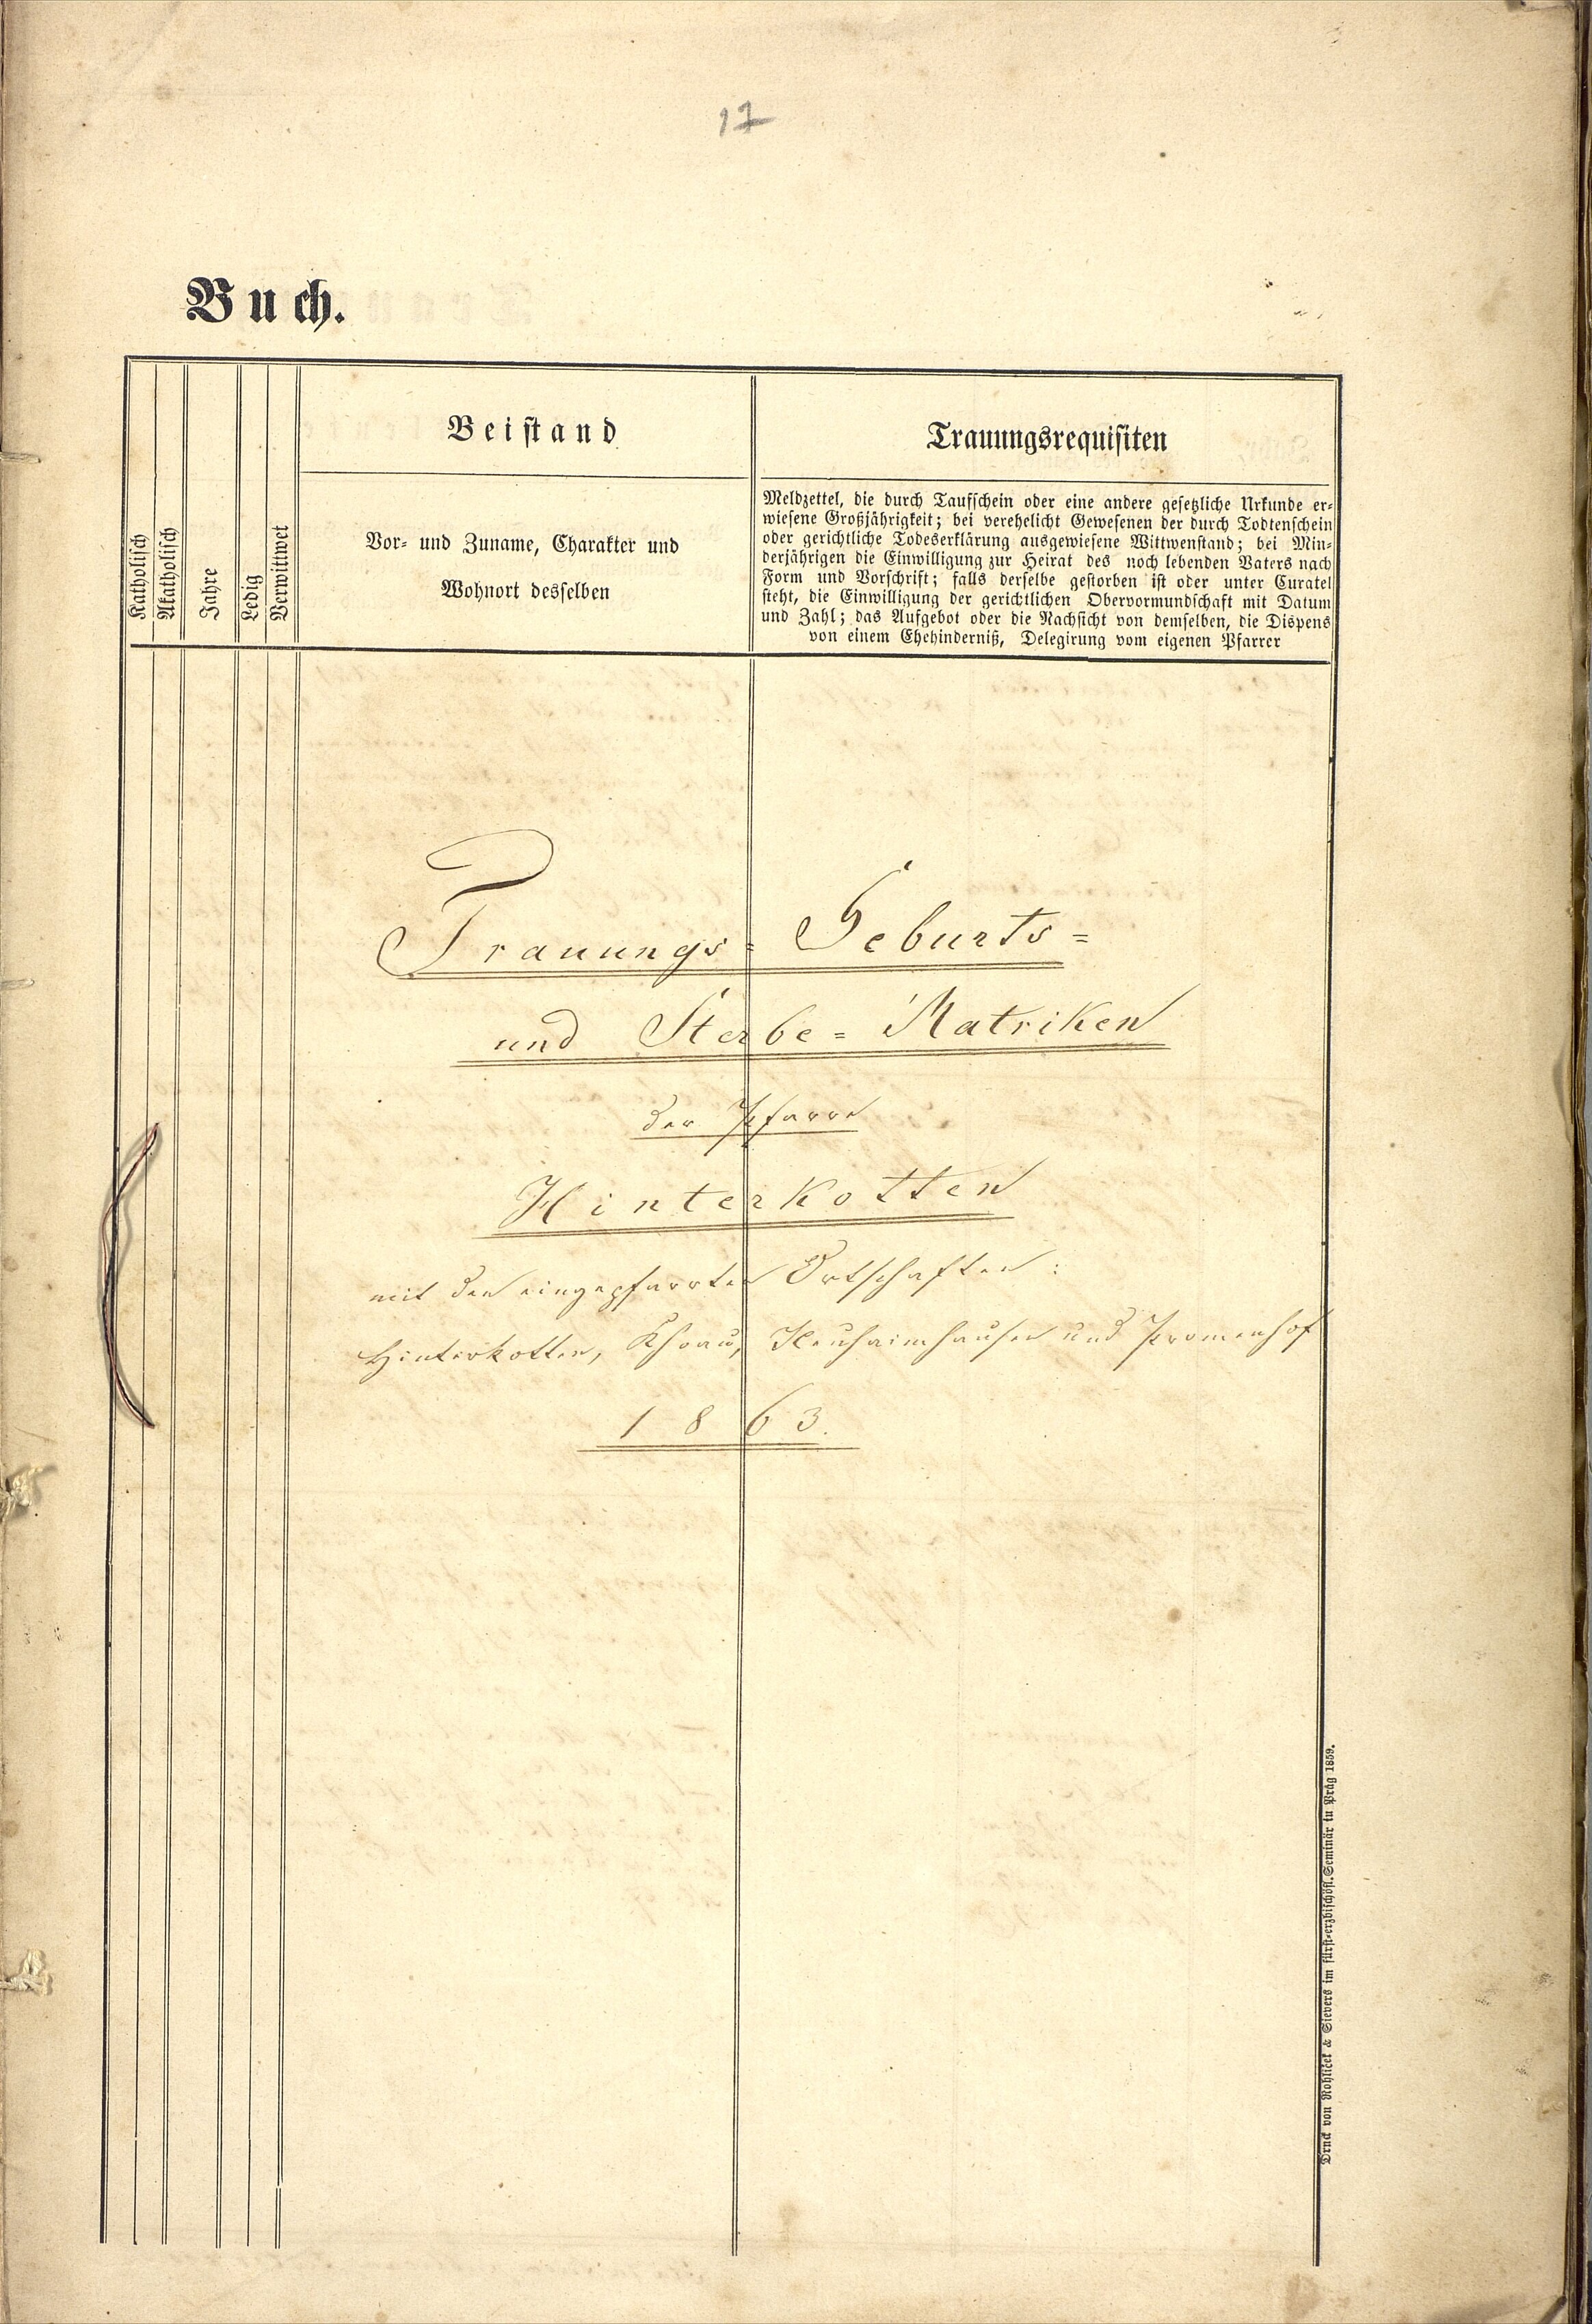 17
Buch.
Katholisch
Akatholisch
Jahre
Ledig
Verwittwet
Beistand
Vor- und Zuname, Charakter und
Wohnort desselben
Trauungsrequisiten
Meldzettel, die durch Taufschein oder eine andere gesetzliche Urkunde er-
wiesene Großjährigkeit; bei verehelicht Gewesenen der durch Todtenschein
oder gerichtliche Todeserklärung ausgewiesene Wittwenstand; bei Min-
derjährigen die Einwilligung zur Heirat des noch lebenden Vaters nach
Form und Vorschrift; falls derselbe gestorben ist oder unter Curatel
steht, die Einwilligung der gerichtlichen Obervormundschaft mit Datum
und Zahl; das Aufgebot oder die Nachsicht von demselben, die Dispens
von einem Ehehinderniß, Delegirung vom eigenen Pfarrer
Trauungs= Geburts=
und Sterbe=Matriken
der Pfarre
Hinterkotten
mit den eingepfarrten Ortschaften:
Hinterkotten, Khoau, Neuhaimhausen und Promenhof
1863.
Druck von Rohliček & Sievers im fürst-erzbischöfl. Seminär in Prag 1859.